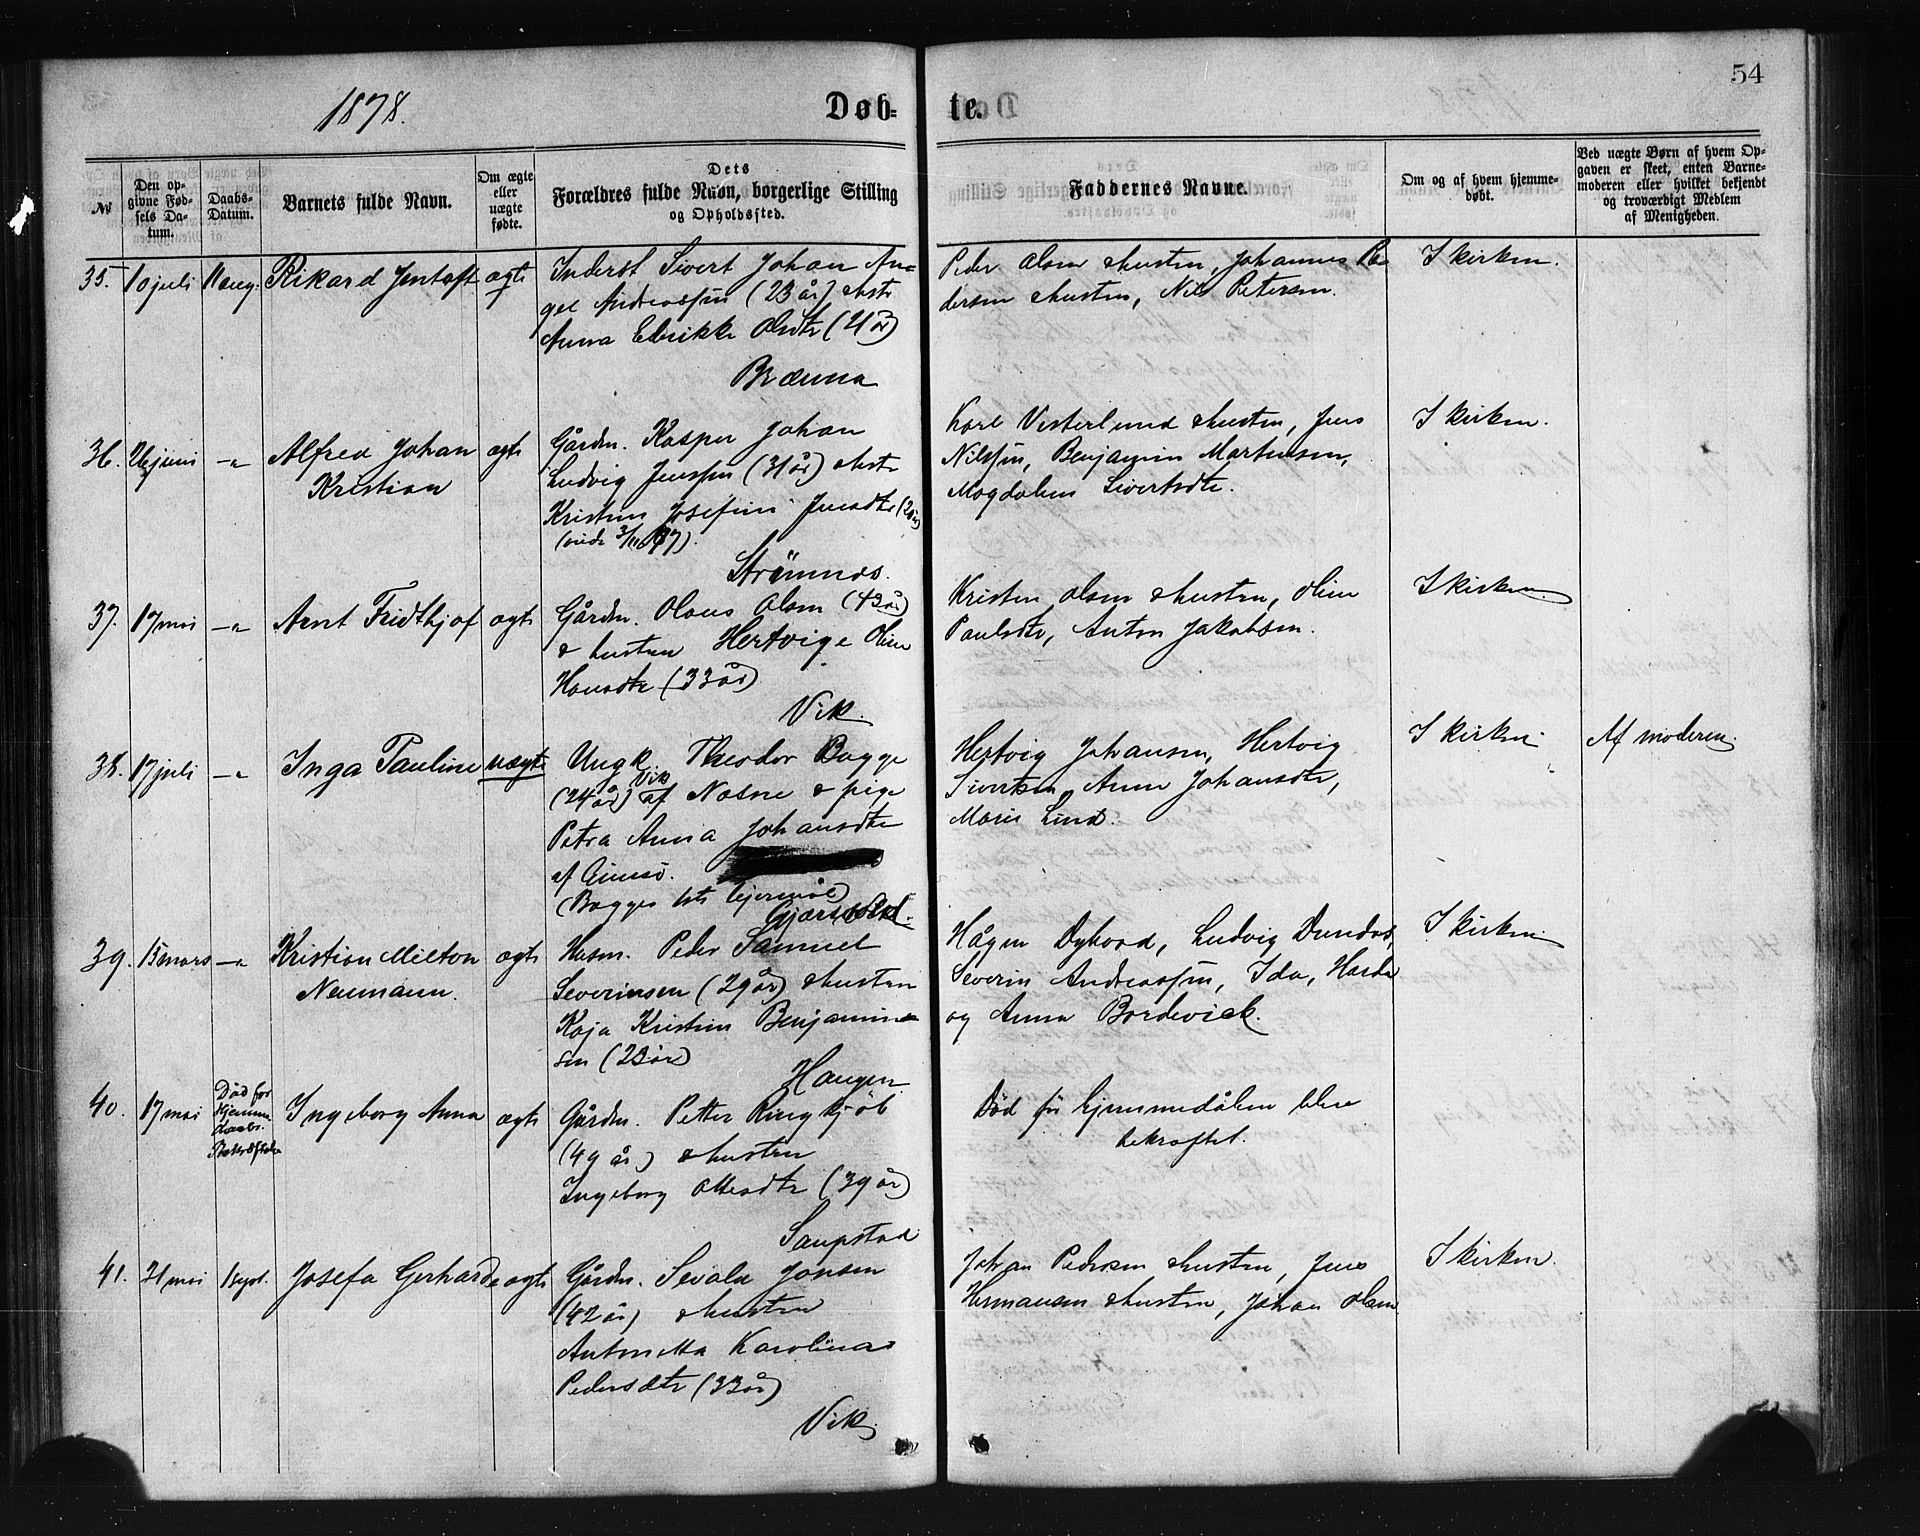 54
1878.
Døb- te.
№
Den op-
givne Fød-
sels Da-
tum.
Daabs-
Datum.
Barnets fulde Navn.
Om ægte
eller
uægte
fødte.
Dets
Forældres fulde Navn, borgerlige Stilling
og Opholdssted.
Faddernes Navne.
Om og af hvem hjemme-
døbt.
Ved uægte Børn af hvem Op-
gaven er skeet, enten Barne-
moderen eller hvilket bekjendt
og troværdigt Medlem
af Menigheden.
35. 10 juli 11 aug. Rikard Jentoft ægte
Inderst Sivert Johan An-
gel Andreassen (23 år) & hstr
Anna Elrikke Olsdtr (21 år)
Brænna
Peder Olsen & hustru, Johannes Pe-
dersen & hustru, Nils Petersen.
I kirken.
36. 26 juni -"- Alfred Johan
Kristian
ægte
Gårdm. Kasper Johan
Ludvig Jenssen (31 år) & hstr
Kristine Josefine Jensdtr (20 år)
(viede 3/11 77).
Strömnes.
Karl Vesterlund & hustru, Jens
Nilssen, Benjamin Martinsen,
Magdalena Sivertsdtr.
I kirken.
37. 17 mai -"- Arnt Fridthjof ægte
Gårdm. Olaus Olsen (43 år)
& hustru Hertvige Oline
Hansdtr (33 år)
Vik.
Kristen Olsen & hustru, Oline
Paulsdtr, Anton Jakobsen.
I kirken
38. 17 juli -"- Inga Pauline uægte
Ungk. Theodor Bagge
(24 år) Vik af Nesne & pige
Petra Anna Johansdtr
af Gimsö.
(Bagges 1ste lejermål)
Gjærsvold.
Hertvig Johansen, Hertvig
Sivertsen, Anne Johansdtr,
Marie Lind.
I kirken
Af moderen.
39. 15 mars -"- Kristian Milton
Neumann.
ægte
Husm. Peder Samuel
Severinsen (29 år) & hustru
Kaja Kristine Benjamin-
sen (23 år)
Haugen.
Hågen Dybord, Ludvig Dundas,
Severin Andreassen, Ida, Harda
og Anna Bordevick.
I kirken
40. 17 mai
Død før
Hjemme-
daabs-
Bekræftelse
Ingeborg Anna ægte
Gårdm. Petter Ringkjøb
(49 år) & hustru
Ingeborg Ottesdtr (39 år)
Saupstad
Död för hjemmedåben blev
bekræftet.
41. 21 mai 1 sept. Josefa Gerharde ægte
Gårdm. Sivald Jonsen
(42 år) & hustru
Antonetta Karolina
Pedersdtr (33 år)
Vik.
Johan Pedersen & hustru, Jens
Hermansen & hustru, Johan Olsen
I kirken.